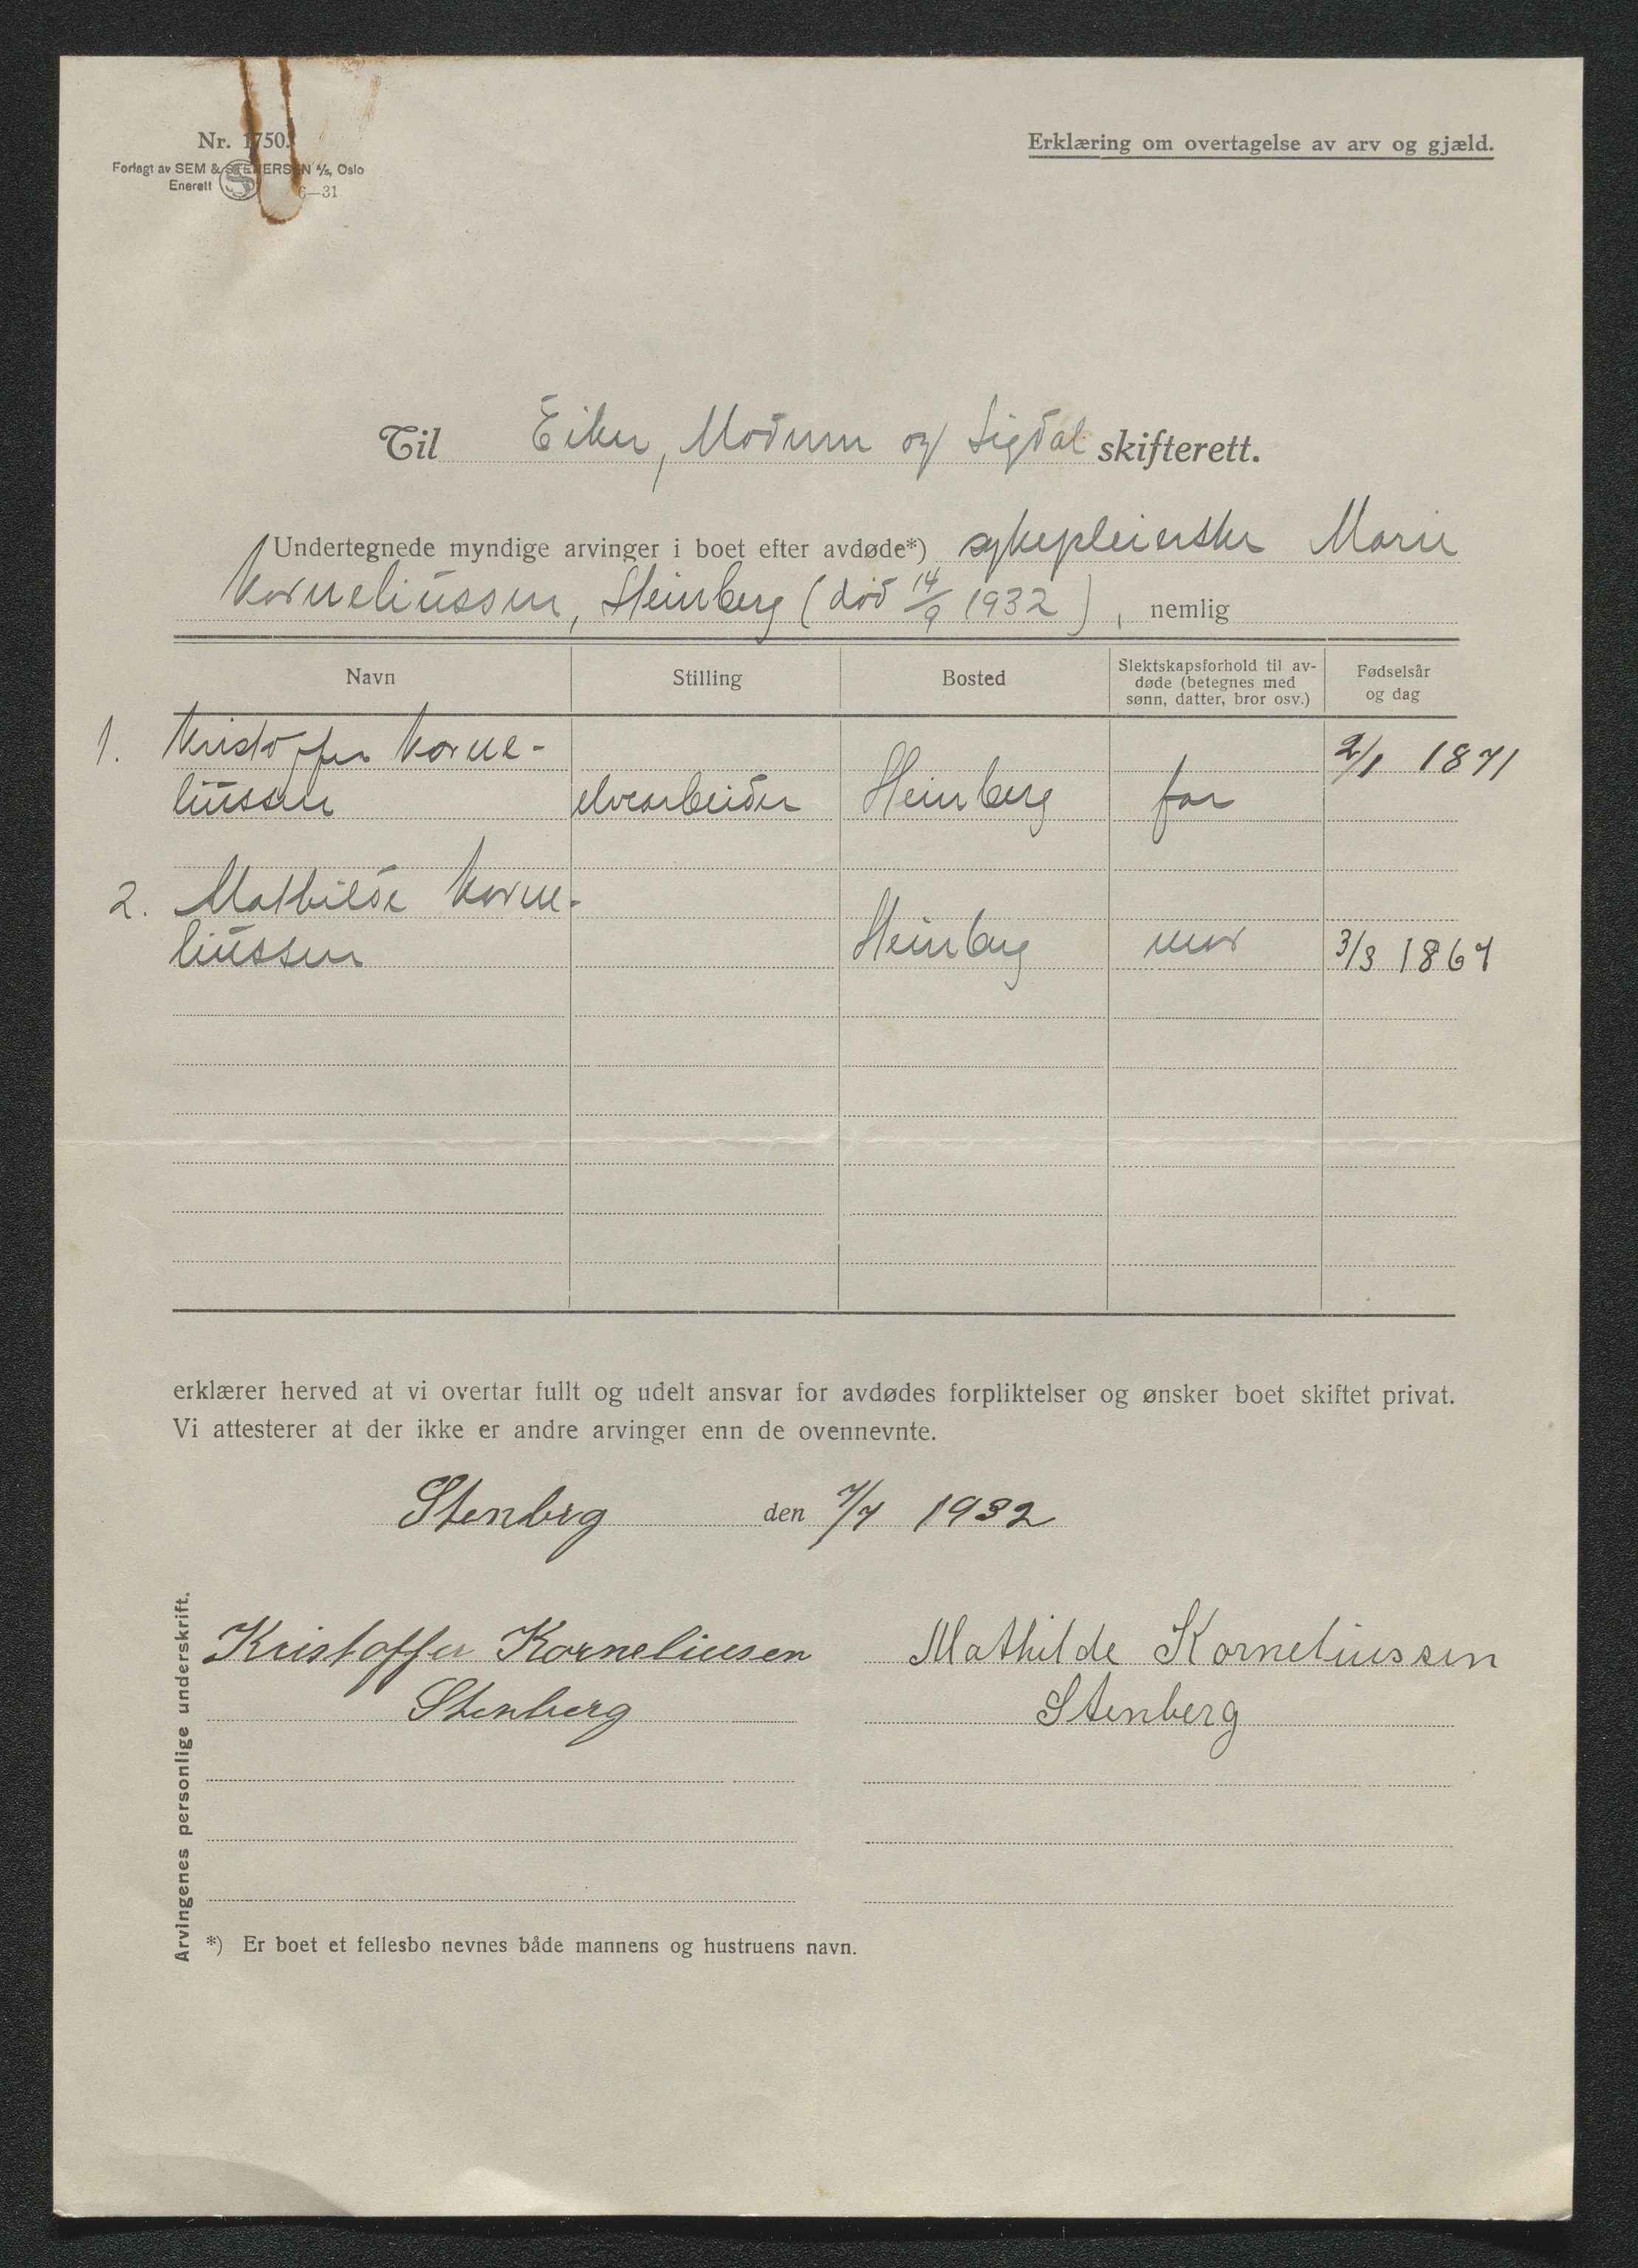 Nr. 1750.
Forlagt av SEM & STENERSEN A/S, Oslo
Enerett 6—31
Erklæring om overtagelse av arv og gjæld.
Til Eiker, Modum og Sigdal skifterett.
Undertegnede myndige arvinger i boet efter avdøde*) sykepleierske Marie
Korneliussen, Steinberg (død 14/9 1932), nemlig
Navn Stilling Bosted Slektskapsforhold til av-
døde (betegnes med
sønn, datter, bror osv.) Fødselsår
og dag
1. Kristoffer Korne- 2/1 1871
liussen elvearbeider Steinberg far
2. Mathilde Korne-
liussen Steinberg mor 3/3 1867
erklærer herved at vi overtar fullt og udelt ansvar for avdødes forpliktelser og ønsker boet skiftet privat.
Vi attesterer at der ikke er andre arvinger enn de ovennevnte.
Stenberg den 7/7 1932
Arvingenes personlige underskrift.
Kristoffer Korneliusen Mathilde Korneliussen
Stenberg Stenberg
*) Er boet et fellesbo nevnes både mannens og hustruens navn.